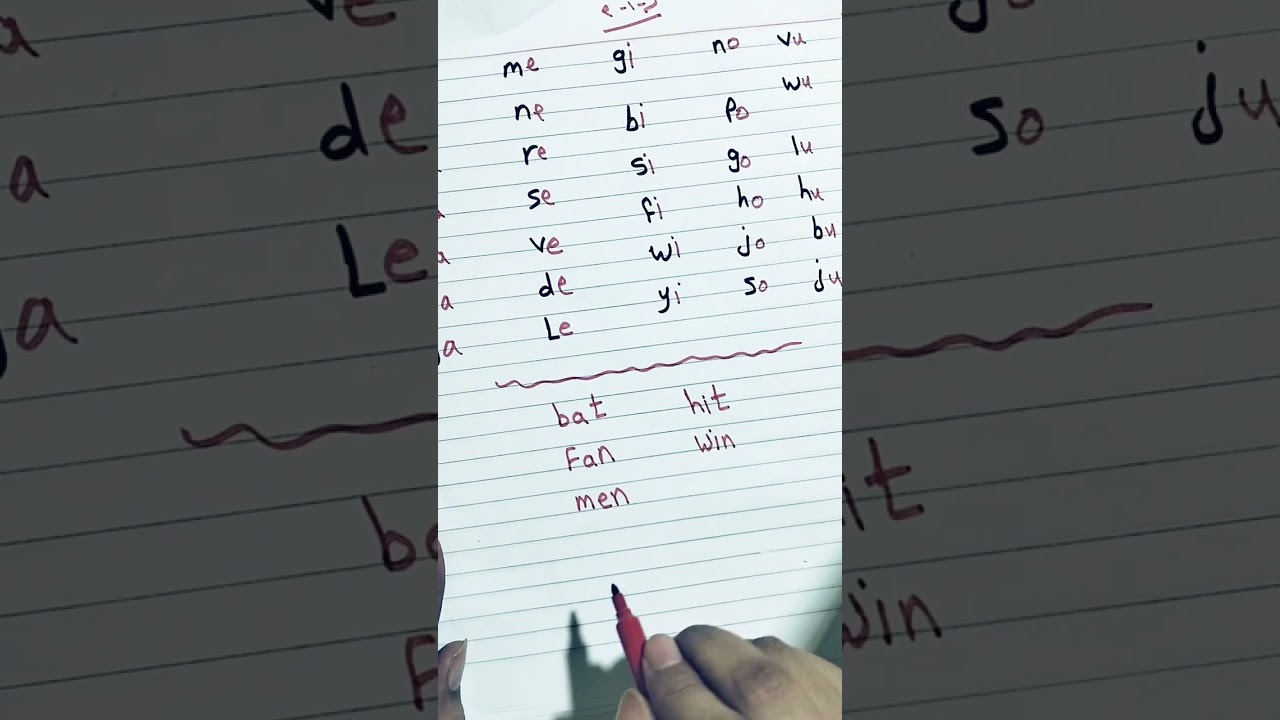 me gi no vu
wu
ne bi po
re si go lu
se fi ho hu
a ve wi jo bu
a de yi so ju
a Le
bat hit
Fan win
men